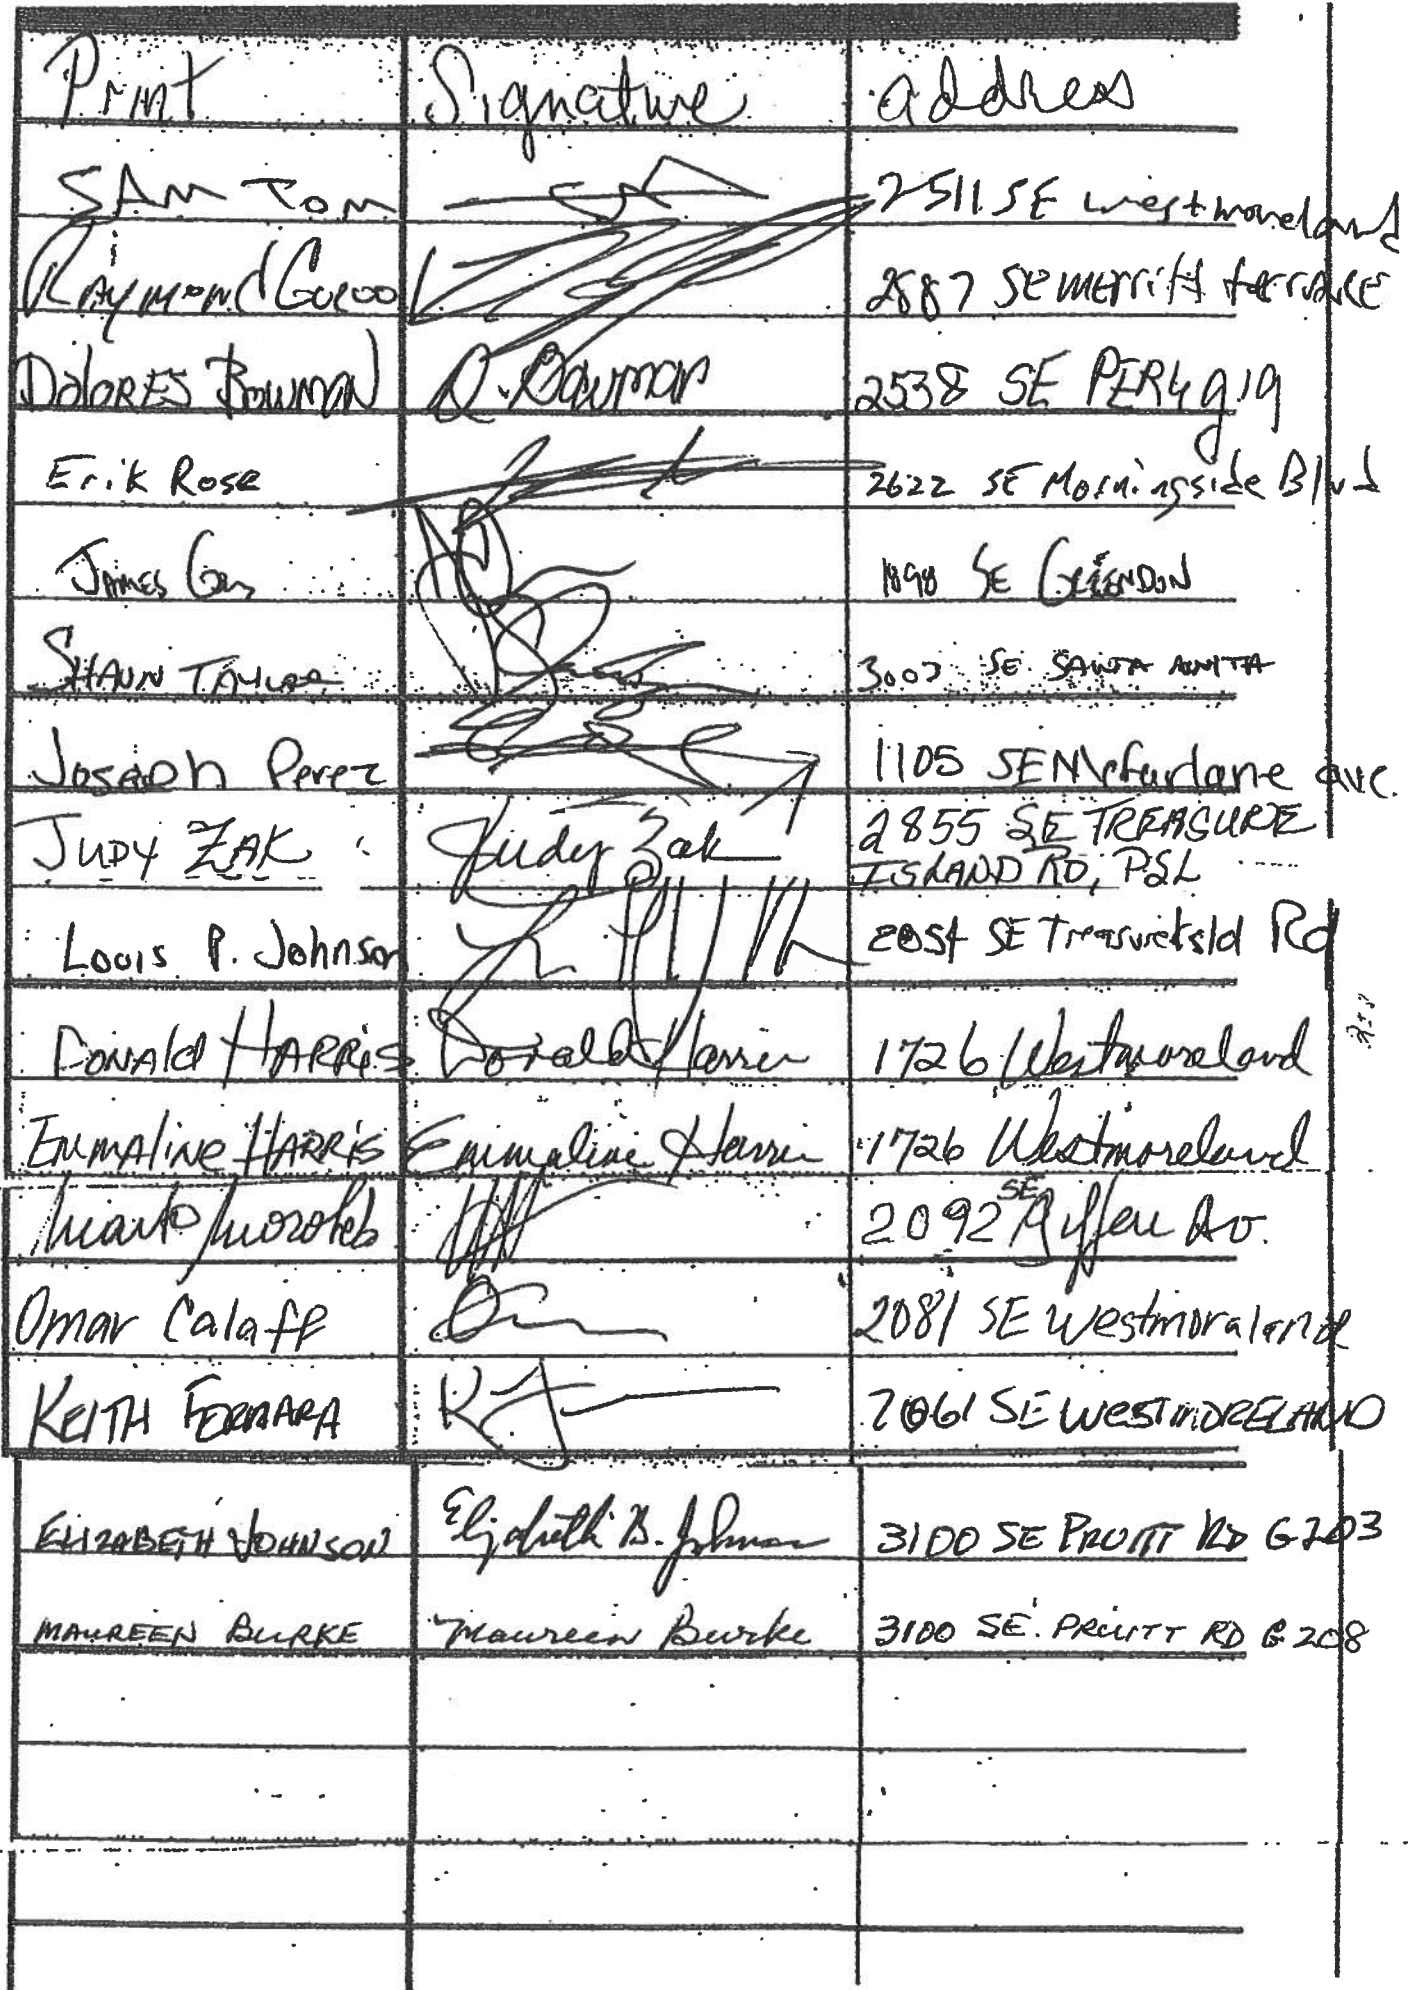 Print Signature address
SAM TOM 2511 SE westmoreland
Raymond 2887 SE merritt terrace
DOLORES BOWMAN D. Bowman 2538 SE
Erik Rose 2622 SE Morningside Blvd
JAMES 1898 SE
SHAUN TAYLOR SE SANTA ANITA
Joseph Perez 1105 SE Mcfarlane ave.
JUDY ZAK Judy Zak 2855 SE TREASURE
ISLAND RD, PSL
Louis P. Johnson SE Rd
DONALD HARRIS Donald Harris 1726 Westmoreland
EMMALINE HARRIS Emmaline Harris 1726 Westmoreland
2092 SE Av.
Omar Calaff 2081 SE Westmoraland
KEITH 2061 SE WESTMORELAND
ELIZABETH JOHNSON Elizabeth B. Johnson 3100 SE PRUITT RD G203
MAUREEN BURKE Maureen Burke 3100 SE. PRUITT RD G208